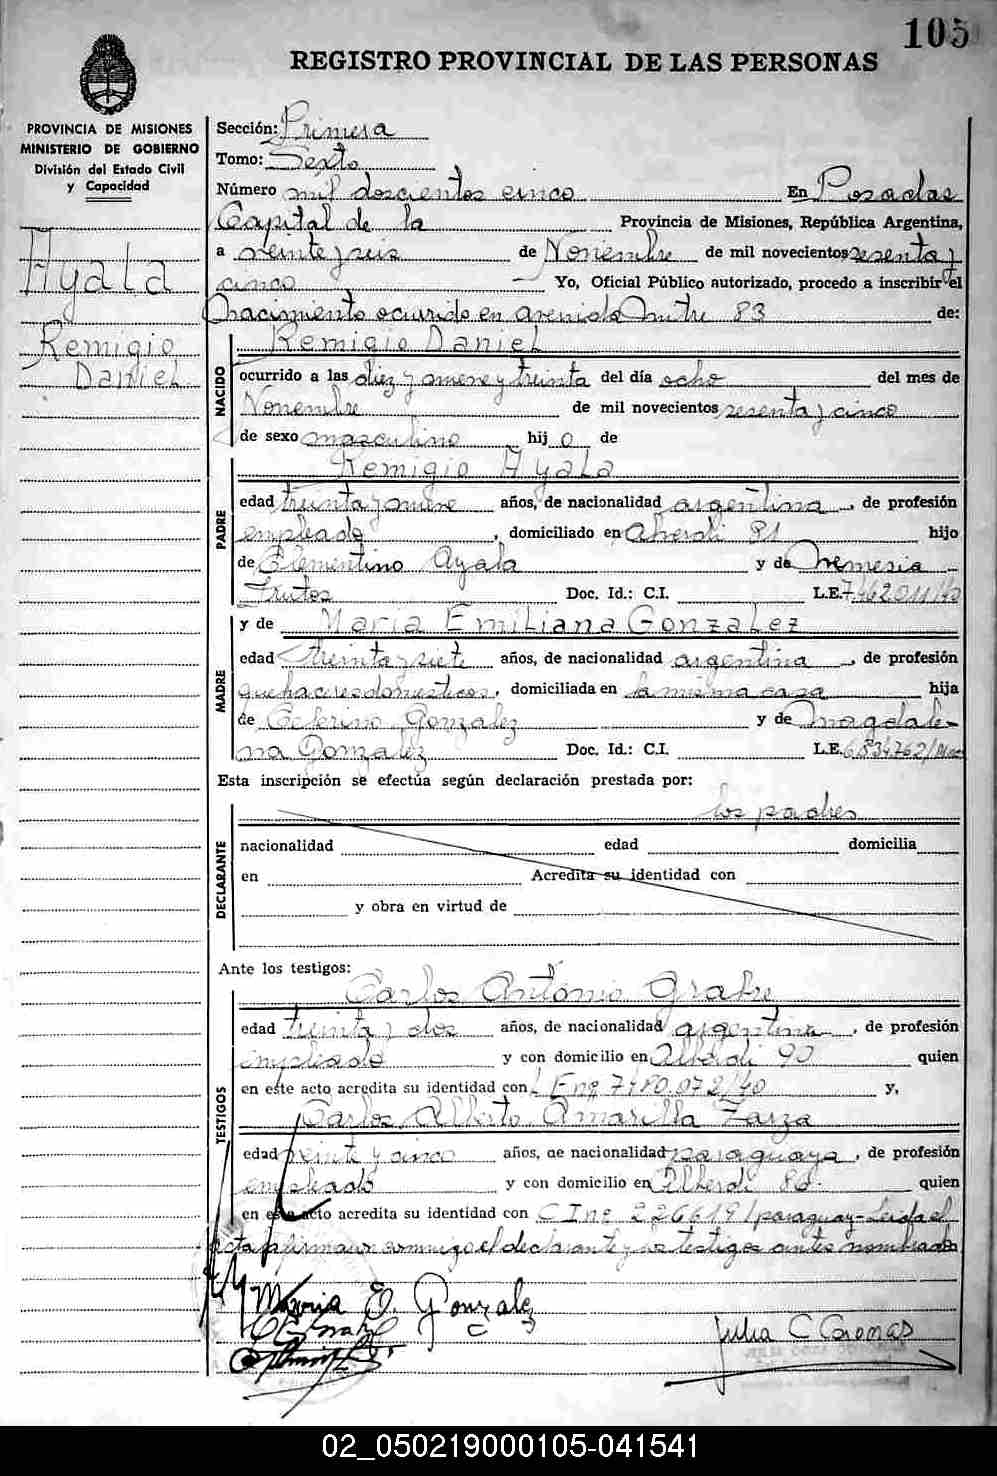 105
REGISTRO PROVINCIAL DE LAS PERSONAS
PROVINCIA DE MISIONES
MINISTERIO DE GOBIERNO
División del Estado Civil
y Capacidad
Ayala
Remigio
Daniel
Sección: Primera
Tomo: Sexto
Número mil doscientos cinco En Posadas
Capital de la Provincia de Misiones, República Argentina,
a veinte y seis de Noviembre de mil novecientos sesenta y
cinco Yo, Oficial Público autorizado, procedo a inscribir el
nacimiento ocurrido en avenida Mitre 83 de:
NACIDO
Remigio Daniel
ocurrido a las diez y nueve y treinta del día ocho del mes de
Noviembre de mil novecientos sesenta y cinco
de sexo masculino hijo de
PADRE
Remigio Ayala
edad treinta y nueve años, de nacionalidad argentina, de profesión
empleado, domiciliado en Alberdi 81 hijo
de Clementino Ayala y de Nemesia
Frutos Doc. Id.: C.I. L.E. 7.462011/40
MADRE
y de Maria Emiliana Gonzalez
edad treinta y siete años, de nacionalidad argentina, de profesión
quehaceres domesticos, domiciliada en la misma casa hija
de Ceferino Gonzalez y de Magdale-
na Gonzalez Doc. Id.: C.I. L.E. 6.834.762/
Esta inscripción se efectúa según declaración prestada por:
DECLARANTE
los padres
nacionalidad edad domicilia
en Acredita su identidad con
y obra en virtud de
Ante los testigos:
TESTIGOS
Carlos Antonio
edad treinta y dos años, de nacionalidad argentina, de profesión
empleado y con domicilio en Alberdi 90 quien
en este acto acredita su identidad con L Enº 7480.072/40 y,
Carlos Alberto Amarilla Zarza
edad veinte y cinco años, de nacionalidad paraguaya, de profesión
empleado y con domicilio en Alberdi 80. quien
en este acto acredita su identidad con C I nº 226619/paraguay-Leida el
acta firman conmigo el declarante y los testigos antes nombrados
Maria E. Gonzalez
Julia C
02_050219000105-041541